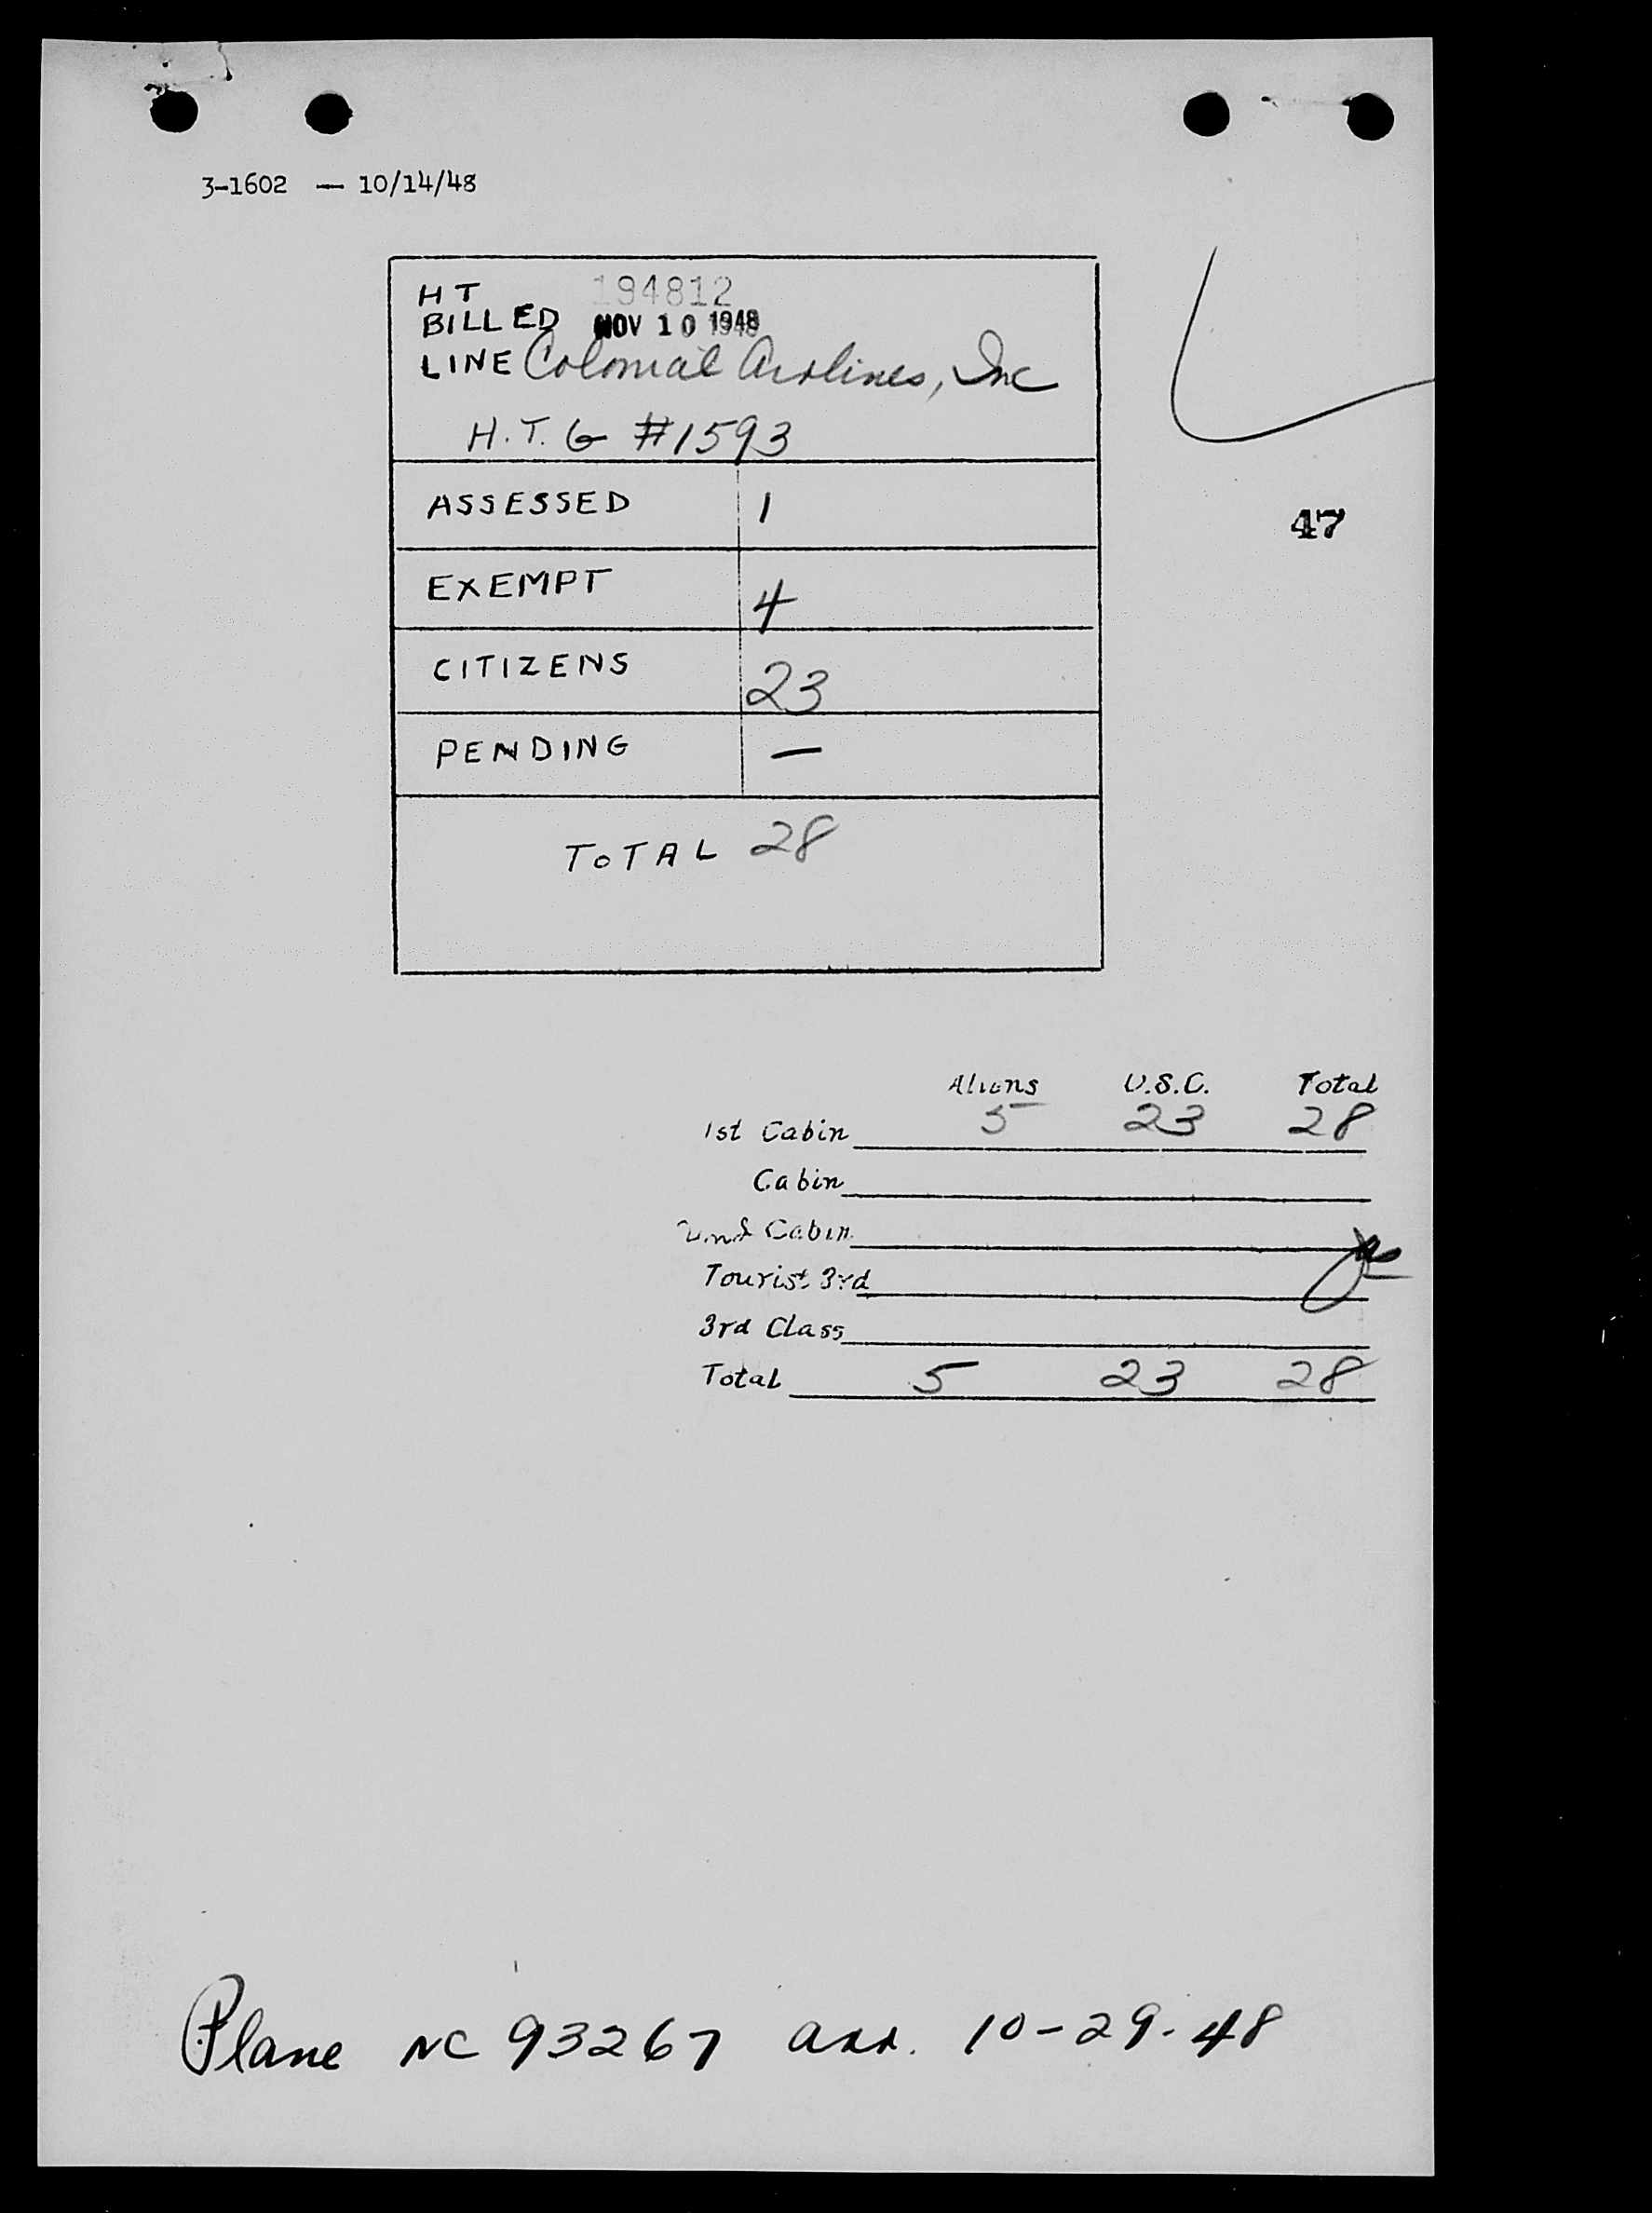 3-1602 — 10/14/48
HT 194812
BILLED NOV 10 1948
LINE Colonial Airlines, Inc
H.T. G #1593
ASSESSED 1
47
EXEMPT 4
CITIZENS 23
PENDING —
TOTAL 28
Aliens U.S.C. Total
1st Cabin 5 23 28
Cabin
2nd Cabin
Tourist 3rd
3rd Class
Total 5 23 28
Plane NC 93267 arr. 10-29-48